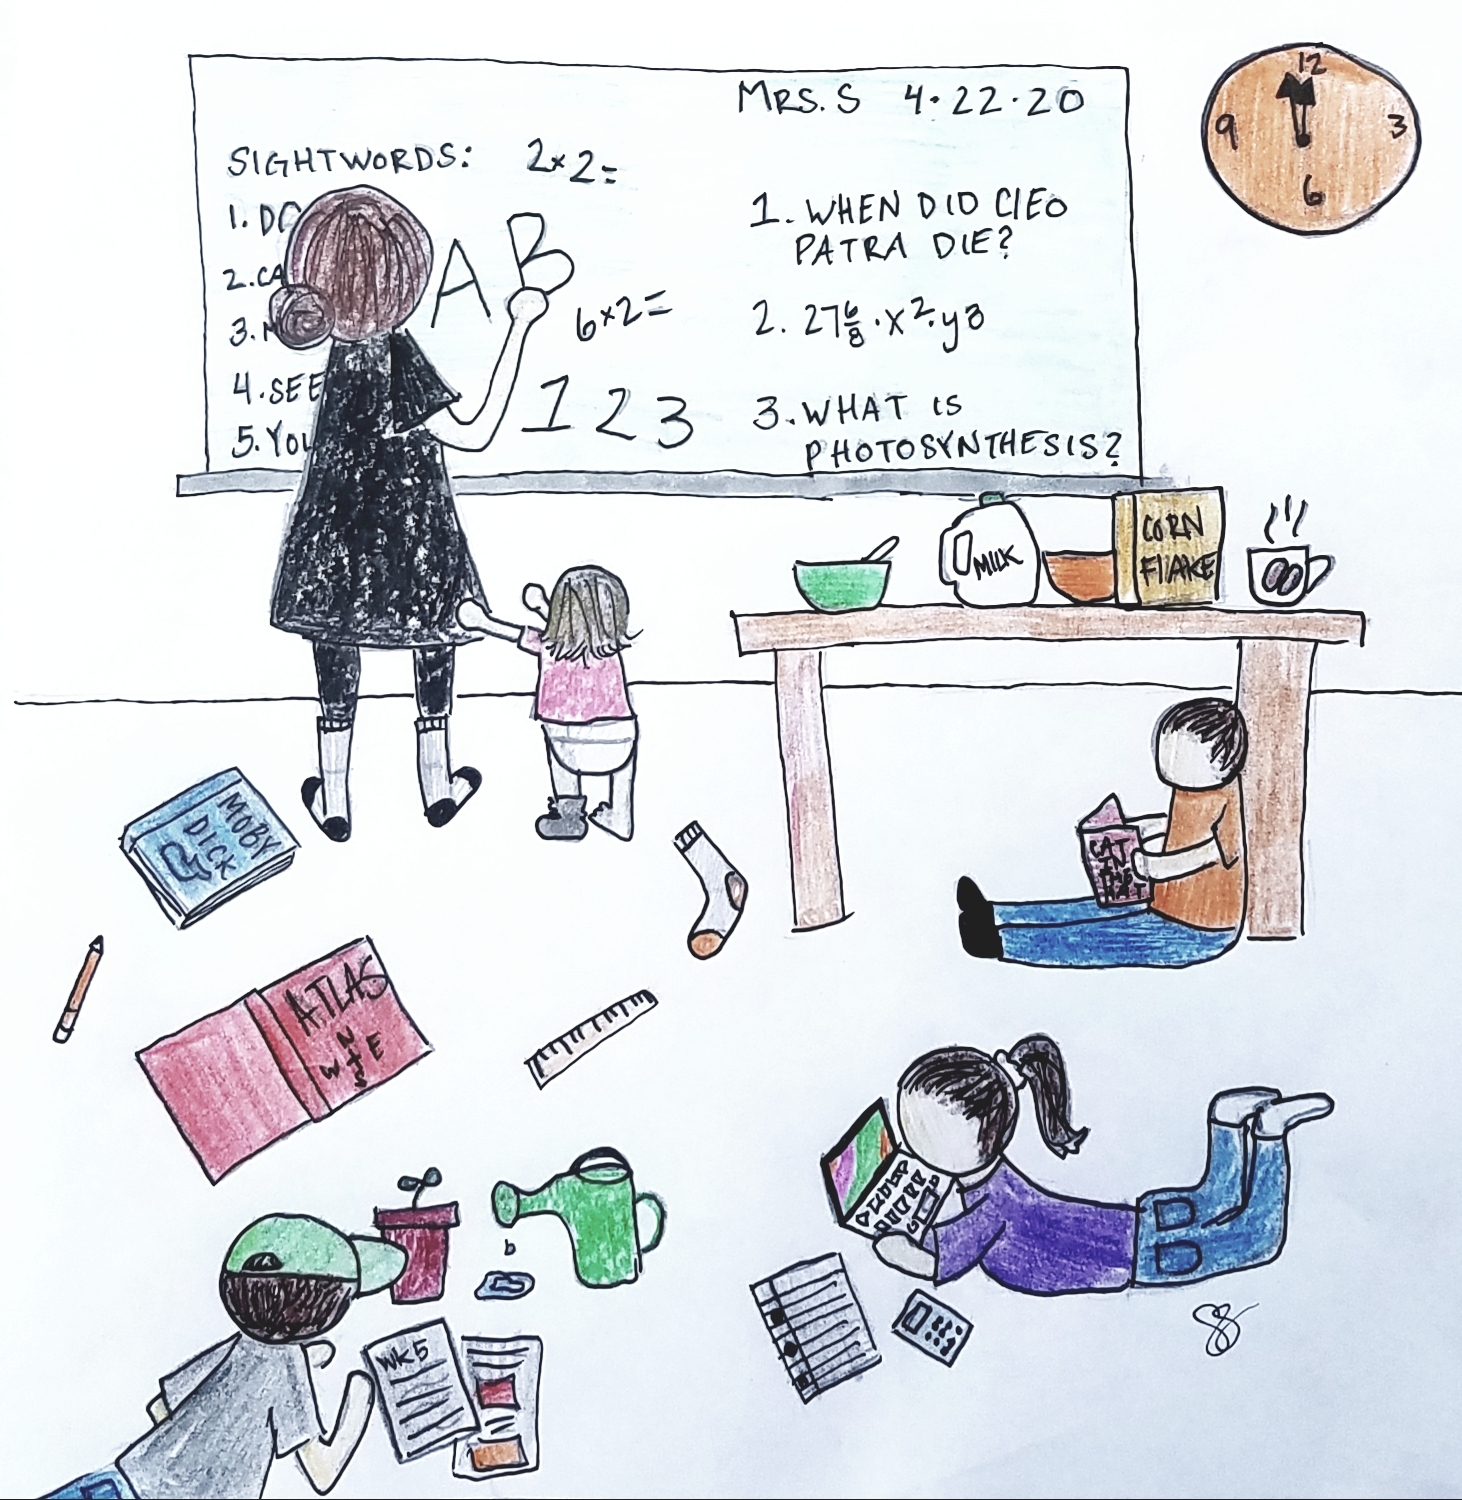 MRS. S 4.22.20
SIGHTWORDS:
1. DO
2. CA
3.
4. SEE
5. YOU
2x2=
A B
6x2=
1 2 3
1. WHEN DID CLEO
PATRA DIE?
2. 27 6/8 · x². y3
3. WHAT IS
PHOTOSYNTHESIS?
12
9
3
6
MILK
CORN
FLAKE
MOBY
DICK
CAT
IN
THE
HAT
ATLAS
N
W E
S
WK 5